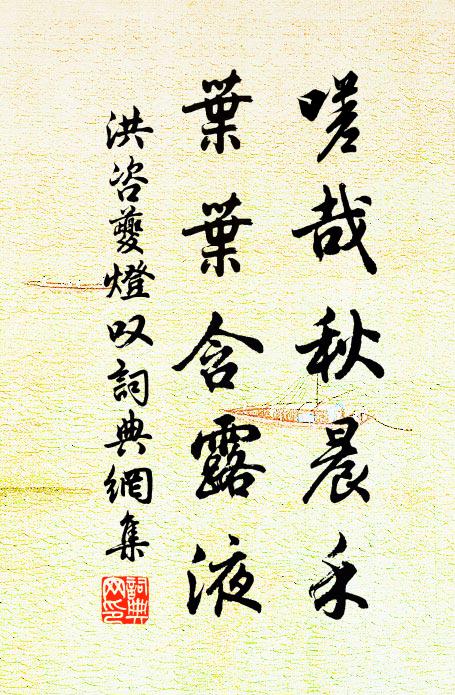 嗟哉秋晨禾
葉葉含露液
洪咨夔燈叹詞典網集
詞典网印